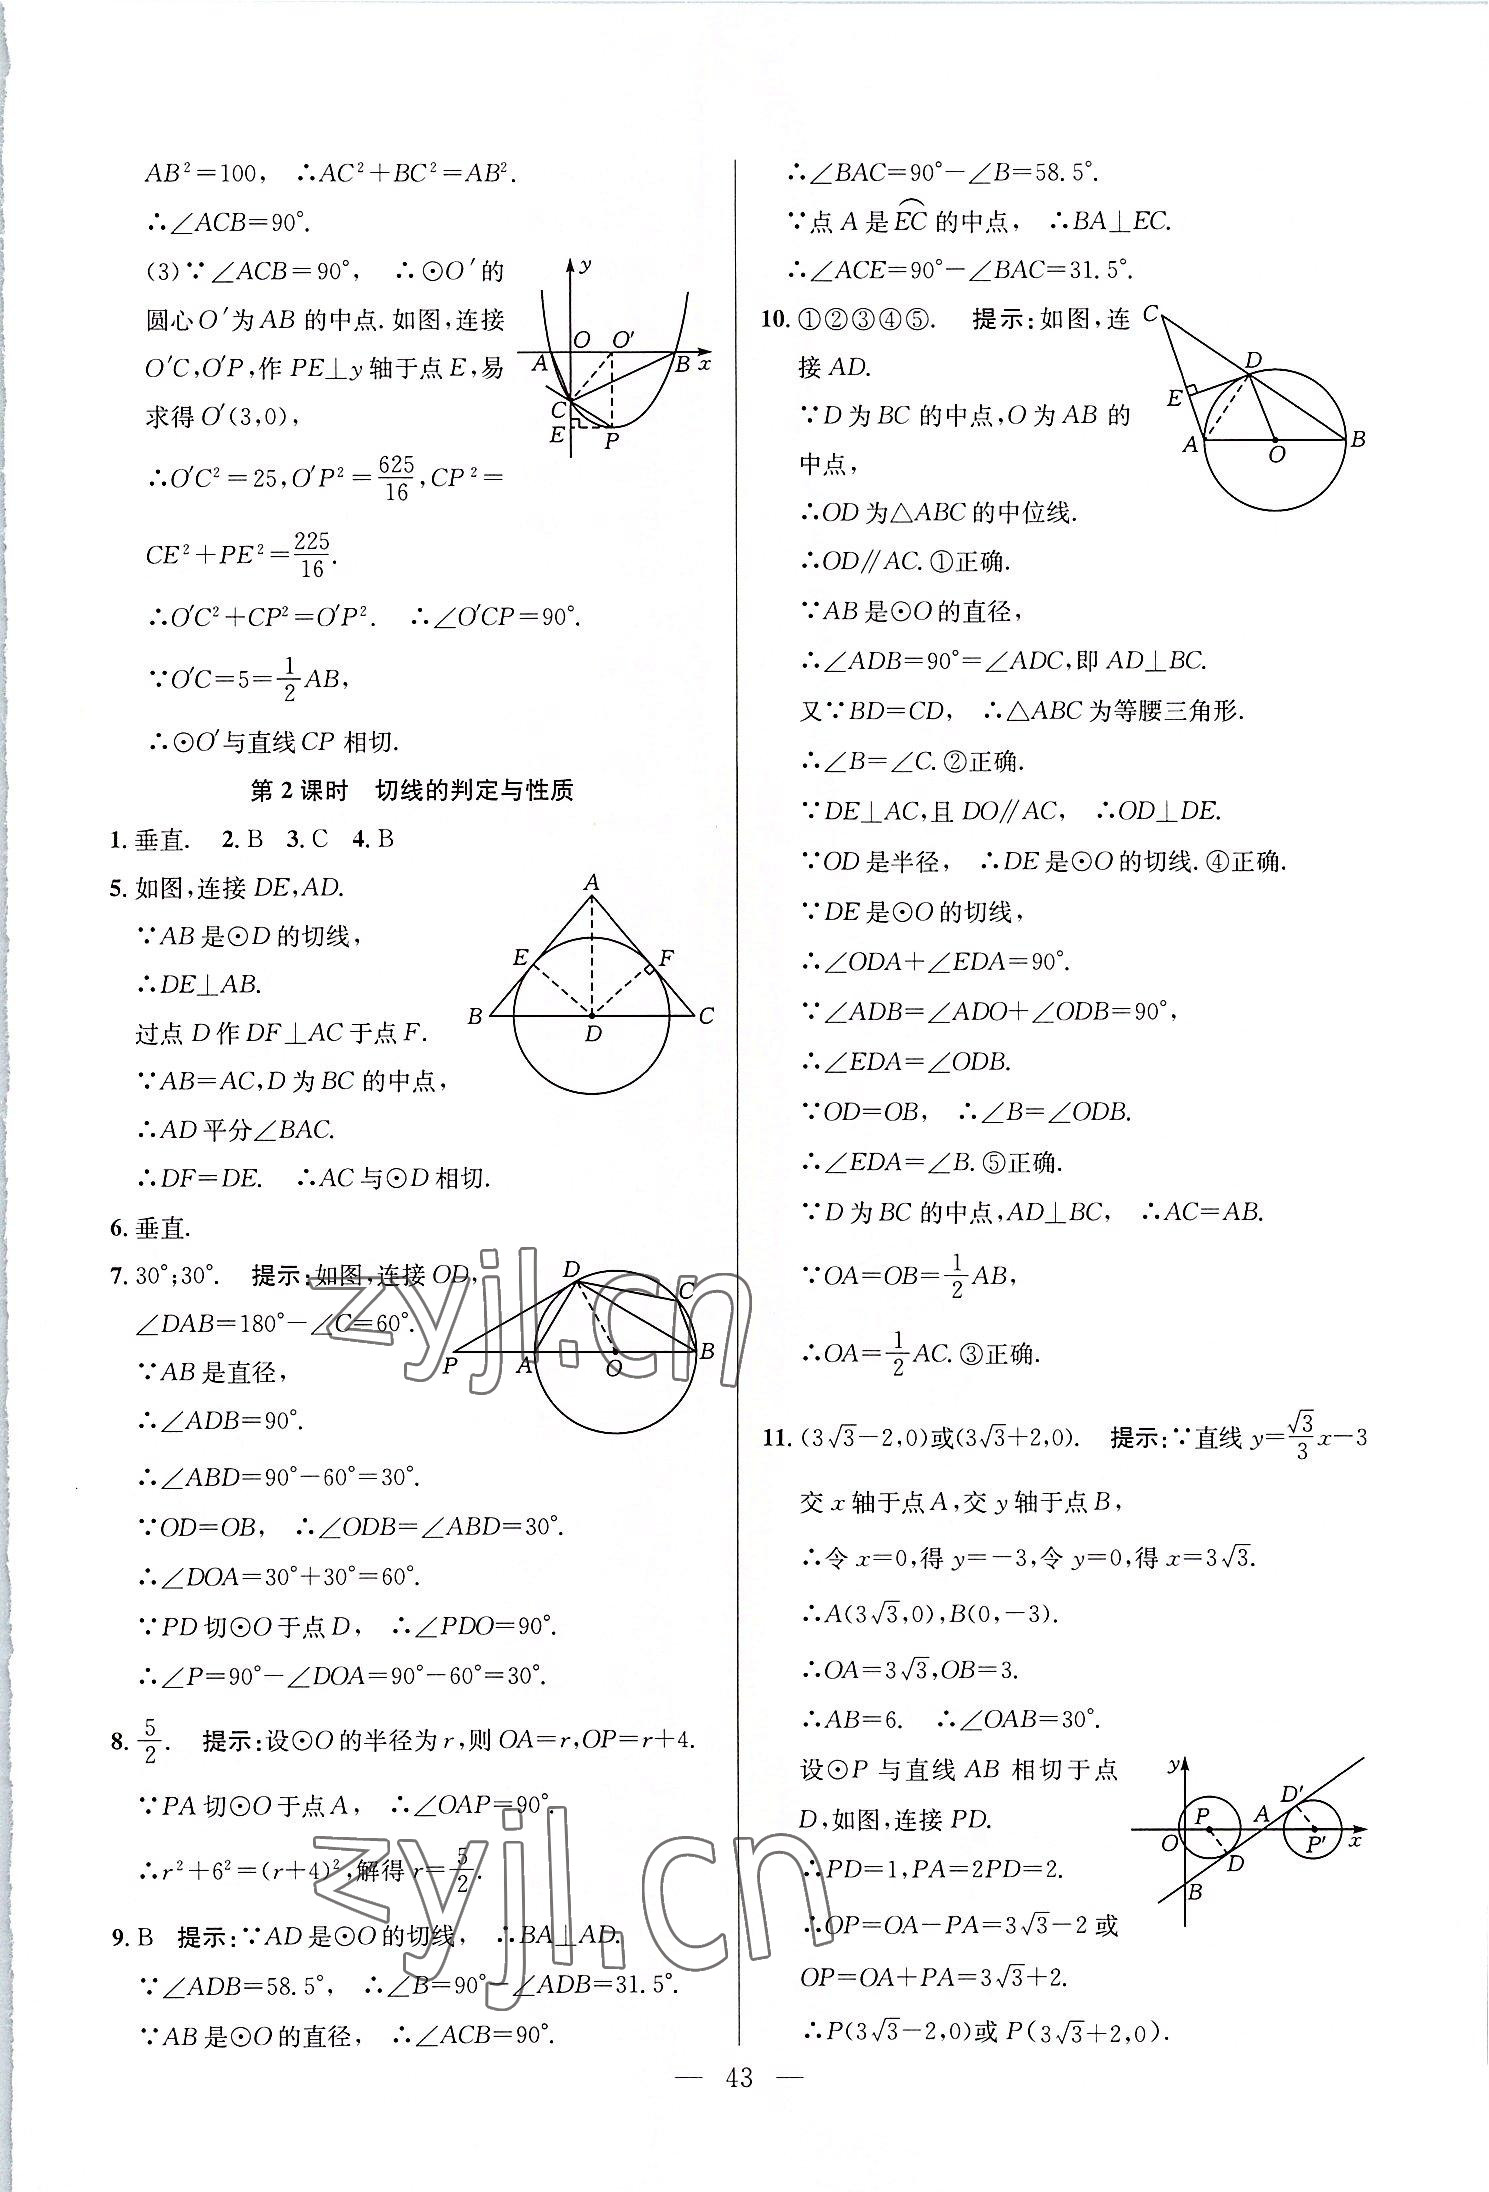 AB²=100, ∴AC²+BC²=AB².
∴∠ACB=90°.
(3)∵∠ACB=90°, ∴⊙O′的
圆心O′为AB的中点.如图,连接
O′C,O′P,作PE⊥y轴于点E,易
求得O′(3,0),
∴O′C²=25,O′P²=625/16,CP²=
CE²+PE²=225/16.
∴O′C²+CP²=O′P². ∴∠O′CP=90°.
∵O′C=5=1/2AB,
∴⊙O′与直线CP相切.
y
A O O′ B x
C
E P
第2课时 切线的判定与性质
1.垂直. 2.B 3.C 4.B
5.如图,连接DE,AD.
∵AB是⊙D的切线,
∴DE⊥AB.
过点D作DF⊥AC于点F.
∵AB=AC,D为BC的中点,
∴AD平分∠BAC.
∴DF=DE. ∴AC与⊙D相切.
A
E F
B D C
6.垂直.
7.30°;30°. 提示:如图,连接OD,
∠DAB=180°-∠C=60°.
∵AB是直径,
∴∠ADB=90°.
∴∠ABD=90°-60°=30°.
∵OD=OB, ∴∠ODB=∠ABD=30°.
∴∠DOA=30°+30°=60°.
∵PD切⊙O于点D, ∴∠PDO=90°.
∴∠P=90°-∠DOA=90°-60°=30°.
D C
P A O B
8.5/2. 提示:设⊙O的半径为r,则OA=r,OP=r+4.
∵PA切⊙O于点A, ∴∠OAP=90°.
∴r²+6²=(r+4)²,解得r=5/2.
9.B 提示:∵AD是⊙O的切线, ∴BA⊥AD.
∵∠ADB=58.5°, ∴∠B=90°-∠ADB=31.5°.
∵AB是⊙O的直径, ∴∠ACB=90°.
∴∠BAC=90°-∠B=58.5°.
∵点A是EC⌒的中点, ∴BA⊥EC.
∴∠ACE=90°-∠BAC=31.5°.
10.①②③④⑤. 提示:如图,连
接AD.
∵D为BC的中点,O为AB的
中点,
∴OD为△ABC的中位线.
∴OD∥AC.①正确.
∵AB是⊙O的直径,
∴∠ADB=90°=∠ADC,即AD⊥BC.
又∵BD=CD, ∴△ABC为等腰三角形.
∴∠B=∠C.②正确.
∵DE⊥AC,且DO∥AC, ∴OD⊥DE.
∵OD是半径, ∴DE是⊙O的切线.④正确.
∵DE是⊙O的切线,
∴∠ODA+∠EDA=90°.
∵∠ADB=∠ADO+∠ODB=90°,
∴∠EDA=∠ODB.
∵OD=OB, ∴∠B=∠ODB.
∴∠EDA=∠B.⑤正确.
∵D为BC的中点,AD⊥BC, ∴AC=AB.
∵OA=OB=1/2AB,
∴OA=1/2AC.③正确.
C
D
E
A O B
11.(3√3-2,0)或(3√3+2,0). 提示:∵直线y=√3/3x-3
交x轴于点A,交y轴于点B,
∴令x=0,得y=-3,令y=0,得x=3√3.
∴A(3√3,0),B(0,-3).
∴OA=3√3,OB=3.
∴AB=6. ∴∠OAB=30°.
设⊙P与直线AB相切于点
D,如图,连接PD.
∴PD=1,PA=2PD=2.
∴OP=OA-PA=3√3-2或
OP=OA+PA=3√3+2.
∴P(3√3-2,0)或P(3√3+2,0).
y D′
P A
O P′ x
D
B
zyjl.cn
zyjl.cn
— 43 —